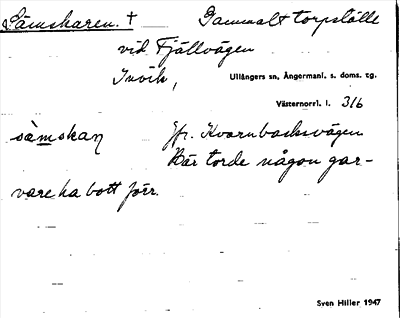 Sämskaren. † Gammalt torpställe
vid Fjällvägen
Invik, Ullångers sn, Ångermanl. s. doms. tg.
Västernorrl. l. 316
sämskaɳ Jfr. Kvarnbacksvägen
Här torde någon gar-
vare ha bott förr.
Sven Hiller 1947